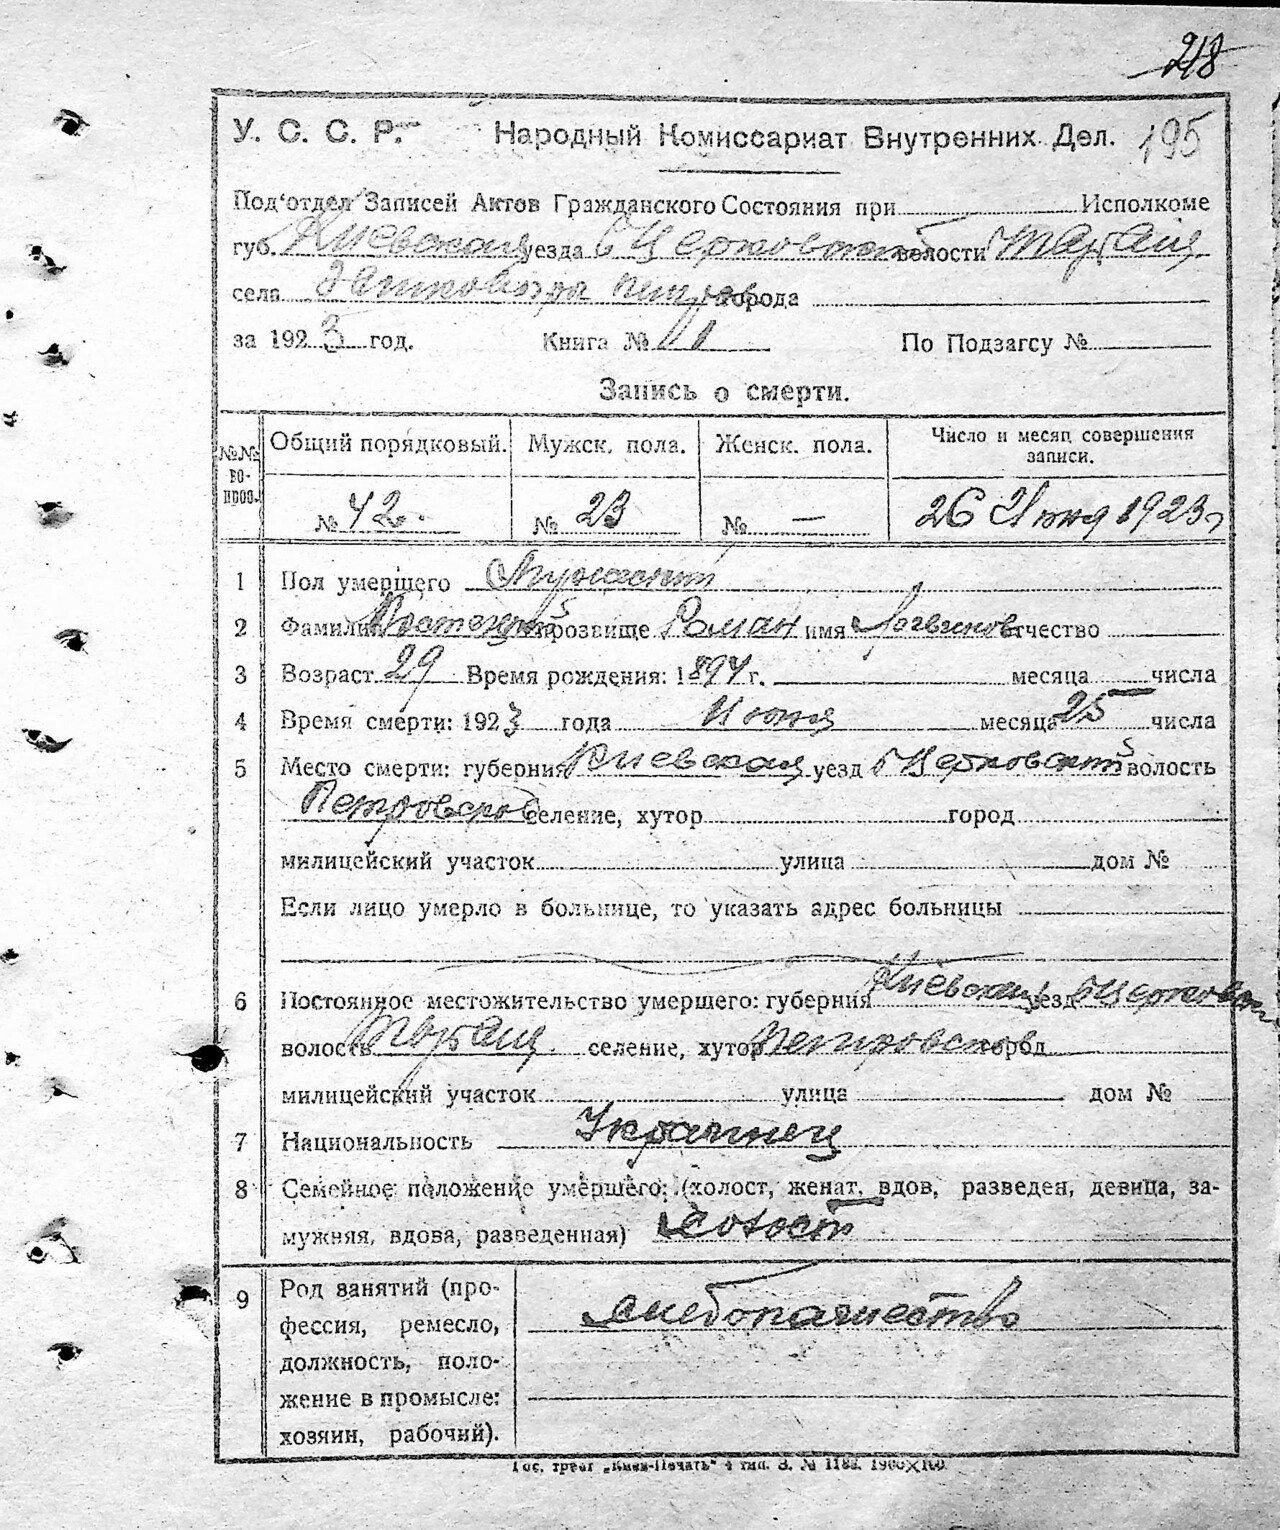 218
У. С. С. Р. Народный Комиссариат Внутренних Дел. 195
Под'отдел Записей Актов Гражданского Состояния при Исполкоме
губ. Киевская уезда БЦерковский волости
села города
за 1923 год. Книга № По Подзагсу №
Запись о смерти.
№№ во-прос. Общий порядковый. Мужск. пола. Женск. пола. Число и месяц совершения записи.
№ 42. № 23 № — 26 Июня 1923 г
1 Пол умершего Мужской
2 Фамилия прозвище Роман имя Логвинов отчество
3 Возраст 29 Время рождения: 1894 г. месяца числа
4 Время смерти: 1923 года Июня месяца 25 числа
5 Место смерти: губерния Киевская уезд БЦерковский волость
Петровское селение, хутор город
милицейский участок улица дом №
Если лицо умерло в больнице, то указать адрес больницы
6 Постоянное местожительство умершего: губерния Киевская уезд БЦерковск
волость селение, хутор Петровское город
милицейский участок улица дом №
7 Национальность Украинец
8 Семейное положение умершего: (холост, женат, вдов, разведен, девица, за-
мужняя, вдова, разведенная) холост
9 Род занятий (про-
фессия, ремесло,
должность, поло-
жение в промысле:
хозяин, рабочий).
хлебопашество
Гос. трест „Киев-Печать“ 4 тип. З. № 1182.